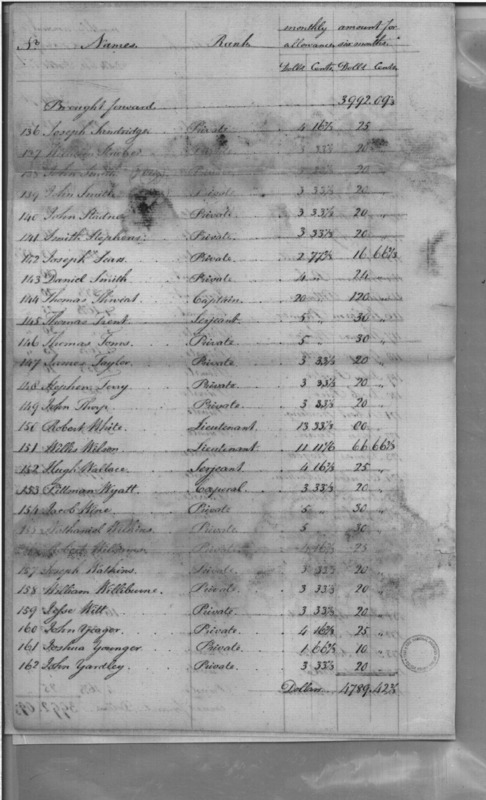 monthly amount for
No Names. Rank. allowance six months.
Dolls Cents Dolls Cents
Brought forward 3992.09⅓
136 Joseph Private 4 16⅔ 25 "
137 William Private 3 33⅓ 20 "
138 John Smith Private 3 33⅓ 20 "
139 John Smith Private 3 33⅓ 20 "
140 John Private. 3 33⅓ 20 "
141 Smith Stephens. Private. 3 33⅓ 20 "
142 Joseph Sears Private 2 77⅔ 16.66⅔
143 Daniel Smith Private 4 " 24 "
144 Thomas Captain 20 " 120 "
145 Thomas Trent Serjeant 5 " 30 "
146 Thomas Toms Private 5 " 30 "
147 James Taylor Private 3 33⅓ 20 "
148 Stephen Terry Private. 3 33⅓ 20 "
149 John Thorp Private. 3 33⅓ 20 "
150 Robert White Lieutenant 13 33⅓
151 Willis Wilson Lieutenant 11 11 66.66⅔
152 Hugh Wallace Serjeant 4 16⅔ 25 "
153 Pittman Wyatt Corporal 3 33⅓ 20 "
154 Jacob Wine Private 5 " 30 "
155 Nathaniel Wilkins Private 5 " 30 "
Robert 4 16⅔ 25 "
157 Joseph Watkins Private. 3 33⅓ 20 "
158 William Williburne. Private. 3 33⅓ 20 "
159 Jesse Witt Private. 3 33⅓ 20 "
160 John Yeager. Private. 4 16⅔ 25 "
161 Joshua Younger Private. 1 66⅔ 10 "
162 John Yardley Private. 3 33⅓ 20 "
Dollars 4789.42⅔